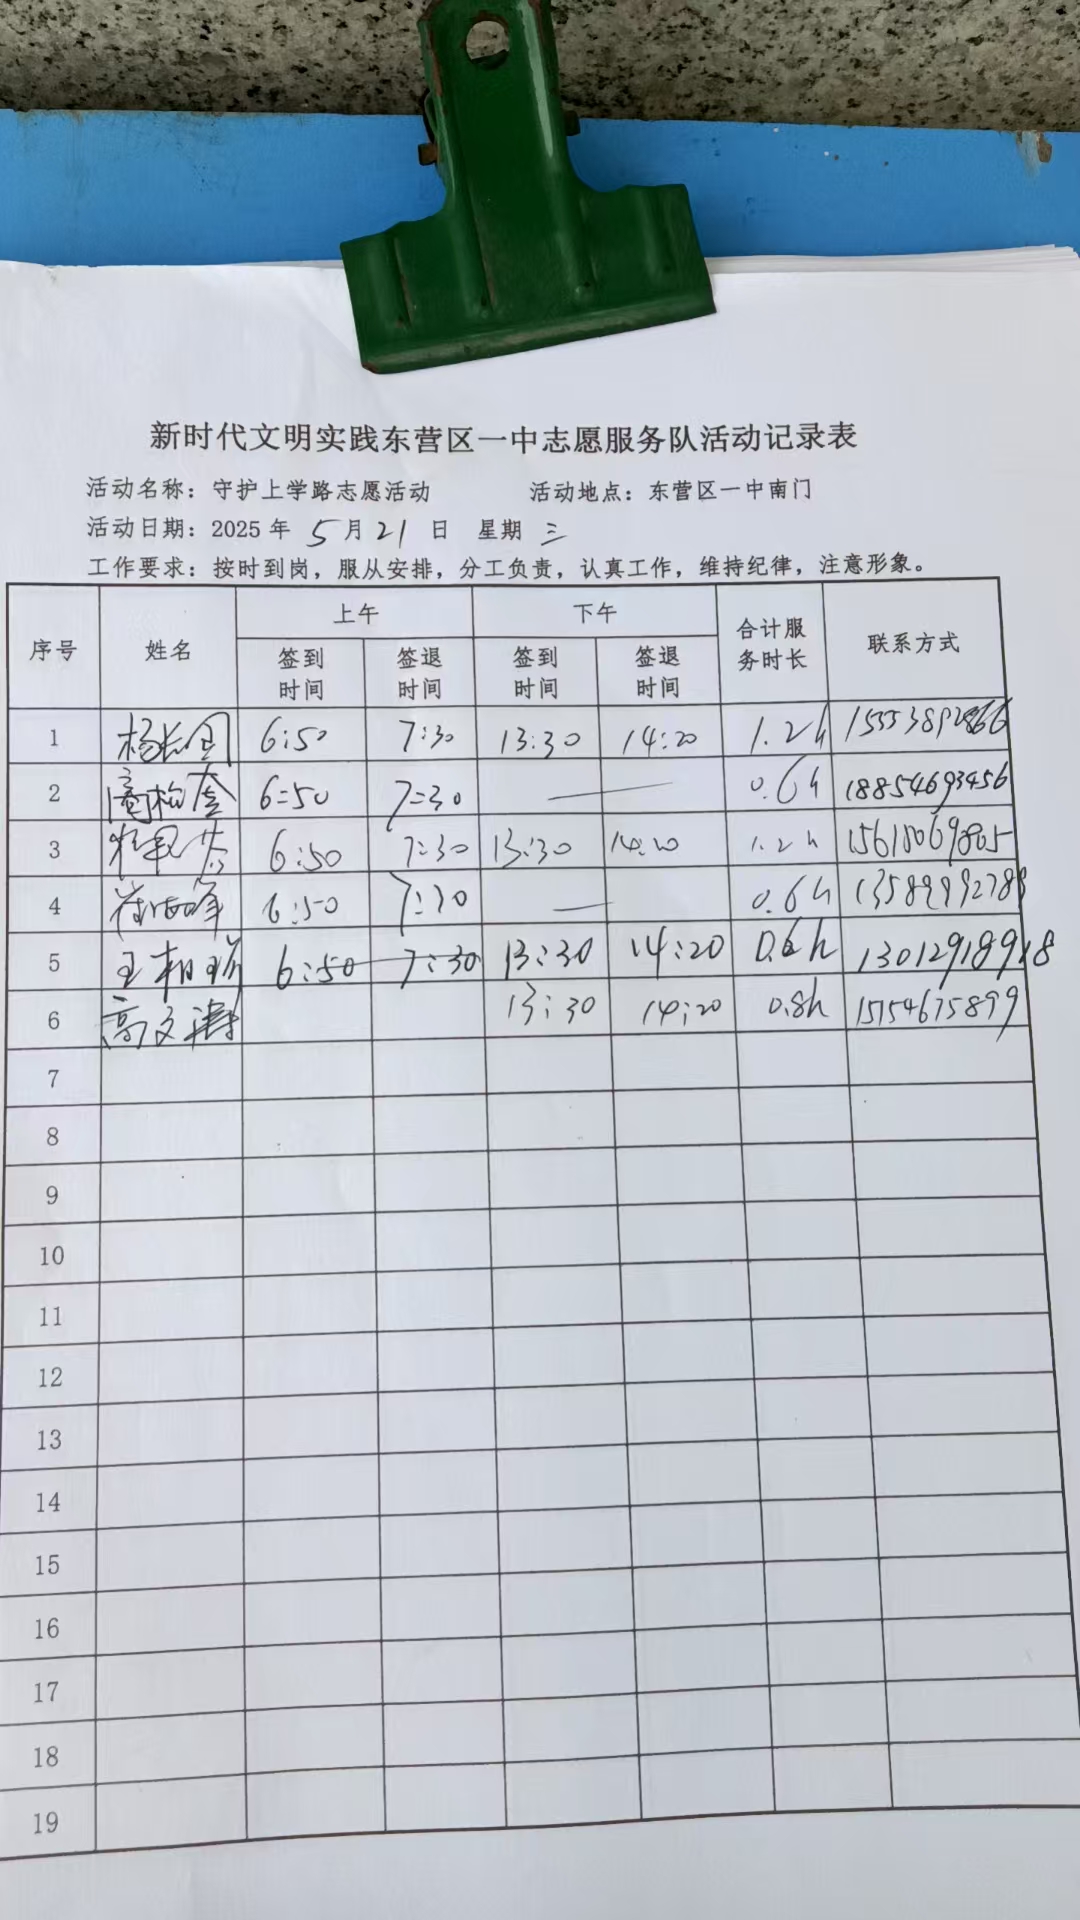 新时代文明实践东营区一中志愿服务队活动记录表
活动名称：守护上学路志愿活动 活动地点：东营区一中南门
活动日期：2025年 5月21日 星期三
工作要求：按时到岗，服从安排，分工负责，认真工作，维持纪律，注意形象。
序号 姓名 上午 下午 合计服务时长 联系方式
签到时间 签退时间 签到时间 签退时间
1 6:50 7:30 13:30 14:20 1.2h
2 6:50 7:30 — 0.6h 18854693456
3 6:50 7:30 13:30 14:20 1.2h
4 6:50 7:30 — 0.6h
5 6:50 7:30 13:30 14:20 0.6h 13012918918
6 高文涛 13:30 14:20 0.8h 15154675899
7
8
9
10
11
12
13
14
15
16
17
18
19